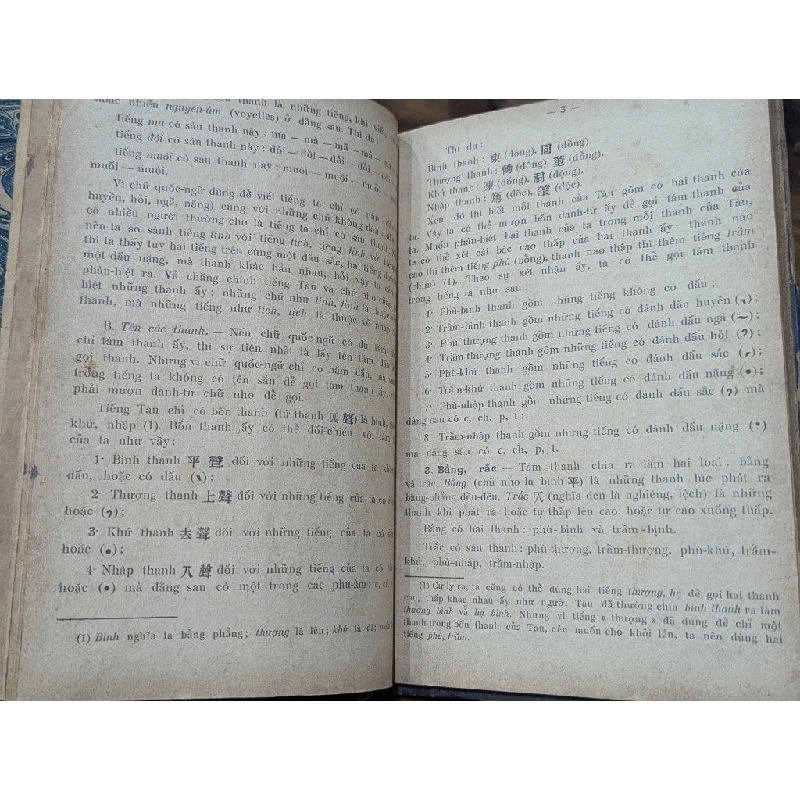 hoặc nhiều nguyên-âm (voyelles) ở đằng sau. Thí dụ
tiếng ma có sáu thanh này: ma — mà — mã — mả — má
tiếng đôi có sáu thanh này: đôi — đồi — đỗi — đổi
tiếng muôi có sáu thanh này: muôi — muồi
muối — muội.
Vì chữ quốc-ngữ dùng để viết tiếng ta chỉ có năm dấu
huyền, hỏi, ngã, nặng) cùng với những chữ không đánh dấu
có nhiều người thường cho là tiếng ta chỉ có sáu thanh.
nếu ta so sánh tiếng tính với tiếng tích, tiếng tịnh với tiếng
thì ta thấy tuy hai tiếng trên cùng một dấu sắc, hai tiếng dưới
một dấu nặng, mà thanh khác hẳn nhau, bởi vậy ta cần
phân-biệt ra. Vả chăng chính tiếng Tàu và chữ nho cũng
biệt những thanh ấy: những chữ như tính, tỉnh là thuộc
thanh, mà những tiếng như tích, tịch là thuộc về nhập
B. Tên các thanh. — Nếu chữ quốc-ngữ có đủ tám
chỉ tám thanh ấy, thì sự tiện nhất là lấy tên tám dấu
gọi thanh. Nhưng vì chữ quốc-ngữ chỉ có năm dấu, mà
trong tiếng ta không có tên sẵn để gọi tám thanh ấy,
phải mượn danh-từ chữ nho để gọi.
Tiếng Tàu chỉ có bốn thanh (tứ thanh 四聲) là bình,
khứ, nhập (1). Bốn thanh ấy có thể đối-chiếu với tám
của ta như vầy:
1· Bình thanh 平聲 đối với những tiếng của ta không
dấu, hoặc có dấu (ˋ);
2· Thượng thanh 上聲 đối với những tiếng của ta có
hoặc (?);
3· Khứ thanh 去聲 đối với những tiếng của ta có
hoặc (•);
4· Nhập thanh 入聲 đối với những tiếng của ta có
hoặc (•) mà đằng sau có một trong các phụ-âm: c, ch,
(1) Bình nghĩa là bằng phẳng; thượng là lên; khứ là đi;
— 3 —
Thí dụ:
Bình thanh: 東 (đông), 同 (đồng)
Thượng thanh: (đổng), 董 (đỗng),
Khứ thanh: 凍 (đống), 洞 (động),
Nhập thanh: 篤 (đốc), (độc).
Xem đó thì biết mỗi thanh của Tàu gồm có hai thanh của
ta. Vậy ta có thể mượn bốn danh-từ ấy để gọi tám thanh của
ta. Muốn phân-biệt hai thanh của ta trong mỗi thanh của Tàu,
ta có thể xét cái bực cao thấp của hai thanh ấy thanh nào
cao thì thêm tiếng phù (bổng), thanh nào thấp thì thêm tiếng trầm
(chìm) (1). Theo sự xét nhận ấy, ta có thể gọi tám thanh
trong tiếng ta như sau
1· Phù-bình thanh gồm những tiếng không có dấu;
2· Trầm-bình thanh gồm những tiếng có đánh dấu huyền (ˋ);
3· Phù thượng thanh gồm những tiếng có đánh dấu ngã (~);
4· Trầm thượng thanh gồm những tiếng có đánh dấu hỏi (?);
5· Phù-khứ thanh gồm những tiếng có đánh dấu sắc (ˊ);
6· Trầm-khứ thanh gồm những tiếng có đánh dấu nặng (•);
7· Phù-nhập thanh gồm những tiếng có đánh dấu sắc (ˊ) mà
đằng sau có c, ch, p, t;
8· Trầm-nhập thanh gồm những tiếng có đánh dấu nặng (•)
mà đằng sau có c, ch, p, t.
3. Bằng, trắc — Tám thanh chia ra làm hai loại: bằng
và trắc. Bằng (chữ nho là bình 平) là những thanh lúc phát ra
bằng-phẳng đều-đều. Trắc 仄 (nghĩa đen là nghiêng, lệch) là những
thanh khi phát ra hoặc tự thấp lên cao, hoặc tự cao xuống thấp.
Bằng có hai thanh: phù-bình và trầm-bình.
Trắc có sáu thanh: phù-thượng, trầm-thượng, phù-khứ, trầm-
khứ, phù-nhập, trầm-nhập.
(1) Cứ lý ra, ta cũng có thể dùng hai tiếng thượng, hạ để gọi hai thanh
cao, thấp khác nhau ấy như người Tàu đã thường chia bình thanh ra làm
thượng bình và hạ bình. Nhưng vì tiếng thượng đã dùng để chỉ một
thanh trong bốn thanh của Tàu, nên muốn cho khỏi lẫn, ta nên dùng hai
tiếng phù, trầm.